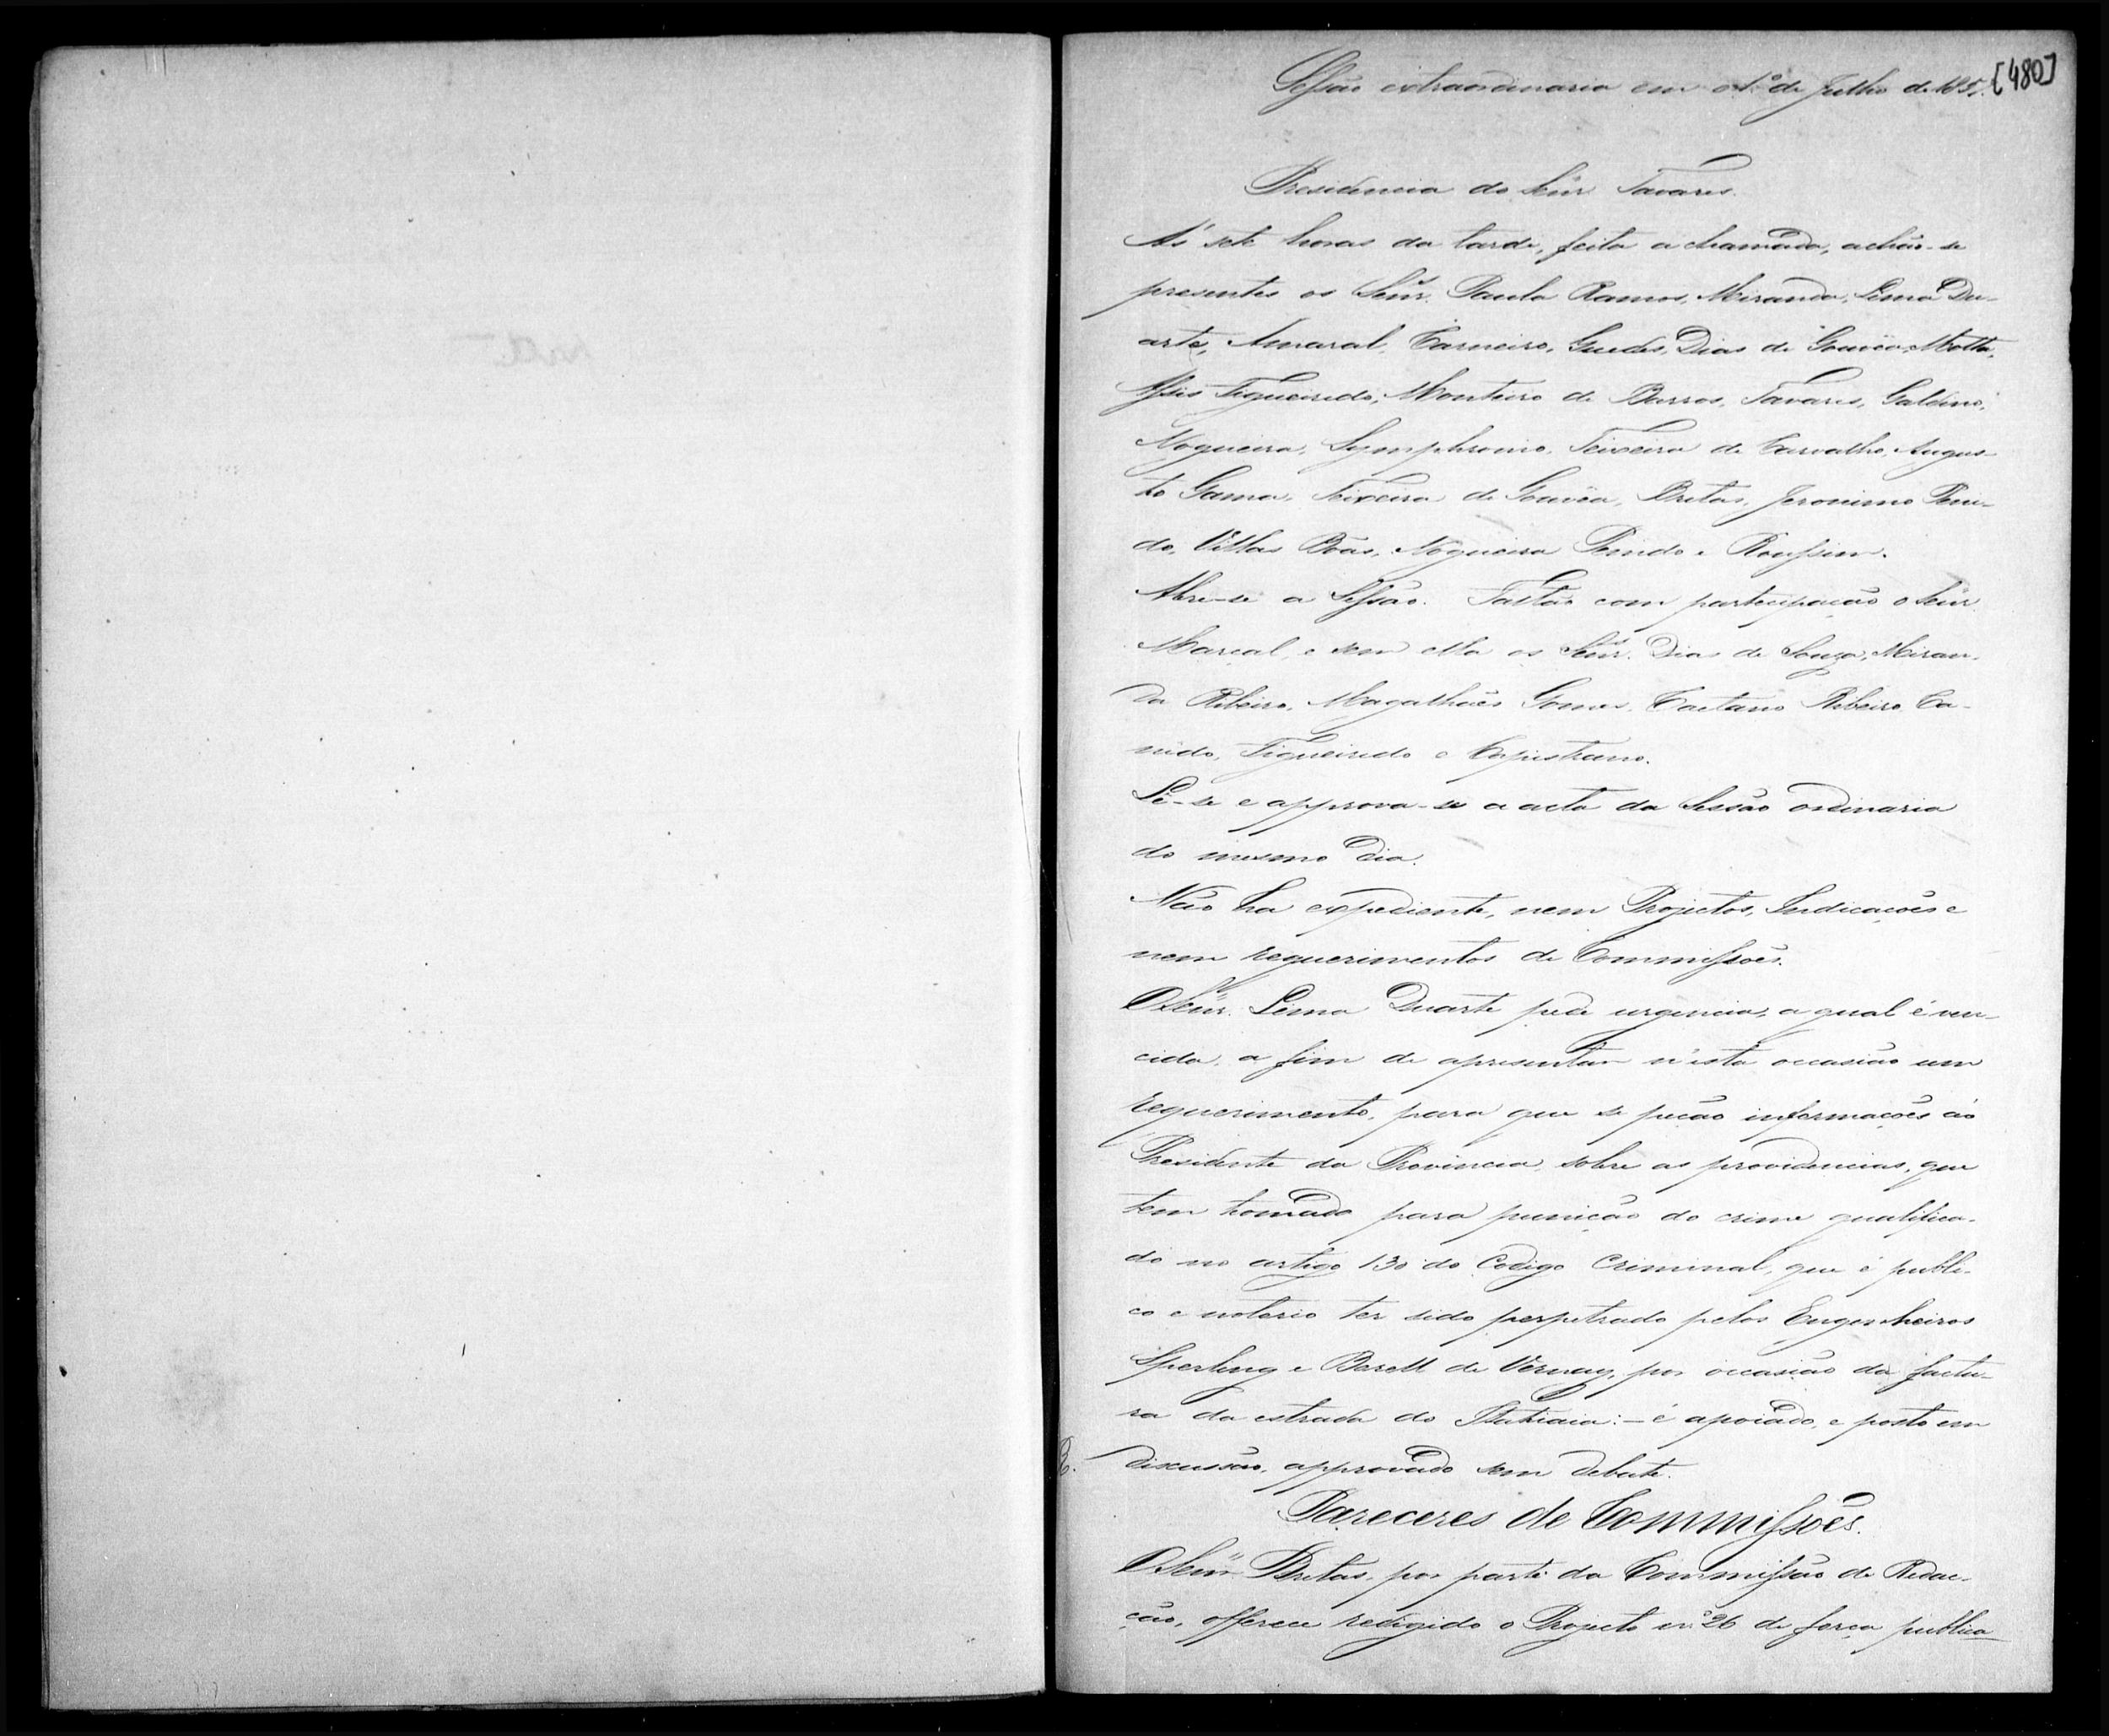 [480]
Sessão extraordinaria em o 1º de Julho de 185
Presidencia do Senr. Tavares.
A's sete horas da tarde, feita a chamada, achão-se
presentes os Senrs. Paula Ramos, Miranda, Lima Du-
arte, Amaral, Carneiro, Guedes, Dias de Gouvêa, Motta,
Assis Figueiredo, Monteiro de Barros, Tavares, Galdino,
Nogueira, Symphronio, Teixeira de Carvalho, Augus-
to Gama, Teixeira de Gouvêa, Bretas, Jeronimo Penu-
do, Villas Bôas, Nogueira Penido e Roussin.
Abre-se a Sessão. Faltão com participação o Senr.
Marçal, e sem ella os Senrs. Dias de Souza, Miran-
da Ribeiro, Magalhães Gomes, Caetano Ribeiro, Ca-
nedo, Figueiredo e Capistrano.
Lê-se e approva-se a acta da Sessão ordinaria
do mesmo dia.
Não ha expediente, nem Projectos, Indicações e
nem requerimentos de Commissões.
O Senr. Lima Duarte pede urgencia, a qual é ven-
cida, a fim de apresentar n'esta occasião um
requerimento, para que se peção informações ao
Presidente da Provincia, sobre as providencias, que
tem tomado para punição do crime qualifica-
do no artigo 130 do Codigo Criminal, que é publi-
co e notorio ter sido perpetrado pelos Engenheiros
Sperling e Berell de Vernay, por occasião da factu-
ra da estrada do Itatiaia: - é apoiado, e posto em
discussão, approvado sem debate.
Pareceres de Commissões.
O Senr. Bretas, por parte da Commissão de Redac-
ção, offerece redigido o Projecto nº 26 de força publica